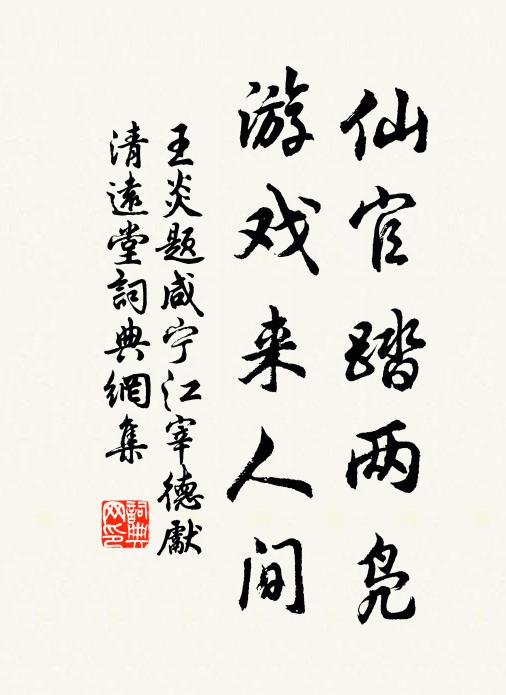 仙官踏两凫
游戏来人间
王炎题咸宁江宰德献
清遠堂詞典網集
詞典网印